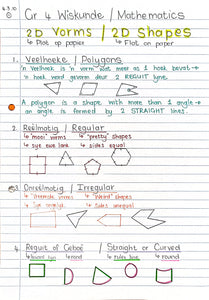 Gr 4 Wiskunde / Mathematics
2D Vorms / 2D Shapes
↳ Plat op papier ↳ Flat on paper
1. Veelhoeke / Polygons
'n Veelhoek is 'n vorm wat meer as 1 hoek bevat →
'n hoek word gevorm deur 2 REGUIT lyne.
A polygon is a shape with more than 1 angle →
an angle is formed by 2 STRAIGHT lines.
2. Reëlmatig / Regular
↳ "mooi" vorms ↳ "pretty" shapes
↳ sye ewe lank ↳ sides equal
3. Onreëlmatig / Irregular
↳ vorms ↳ "weird" shapes
↳ Sye ↳ Sides
4. Reguit of Geboë / Straight or Curved
↳ rond ↳ round